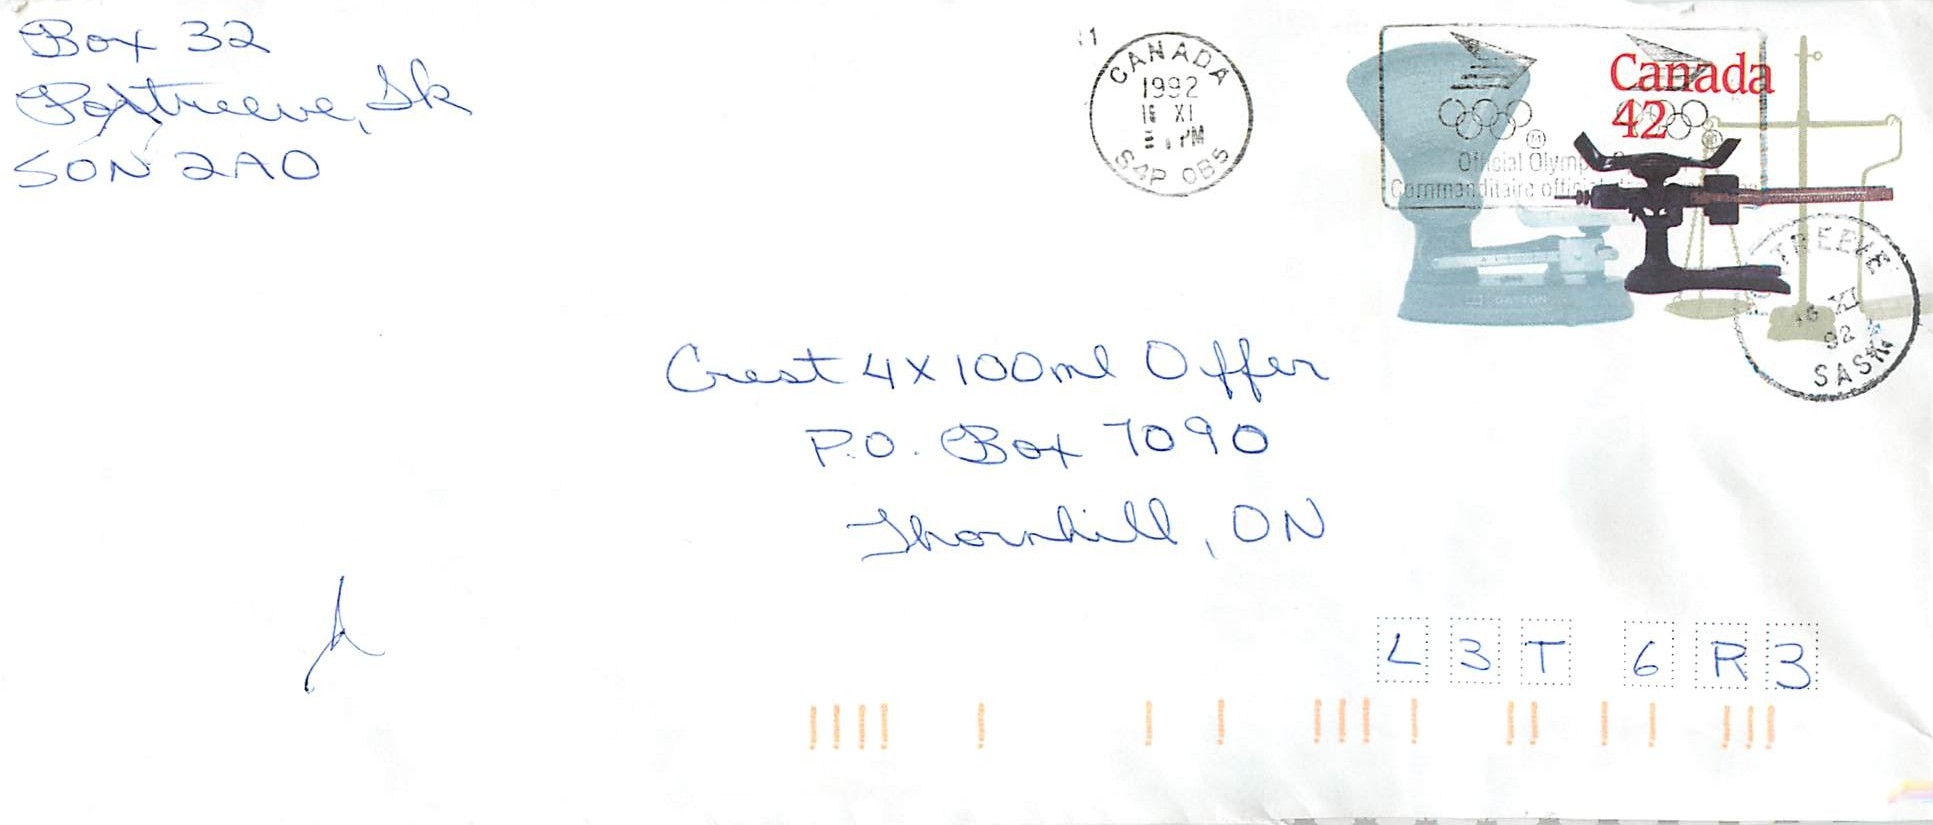 Box 32
Portreeve, Sk
S0N 2A0
CANADA
1992
XI
PM
S4P 0B5
Canada
42
Official Olymp
Commanditaire offici
DAYTON
TREEVE
XI
92
SASK.
Crest 4x100ml Offer
P.O. Box 7090
Thornhill, ON
L3T 6R3